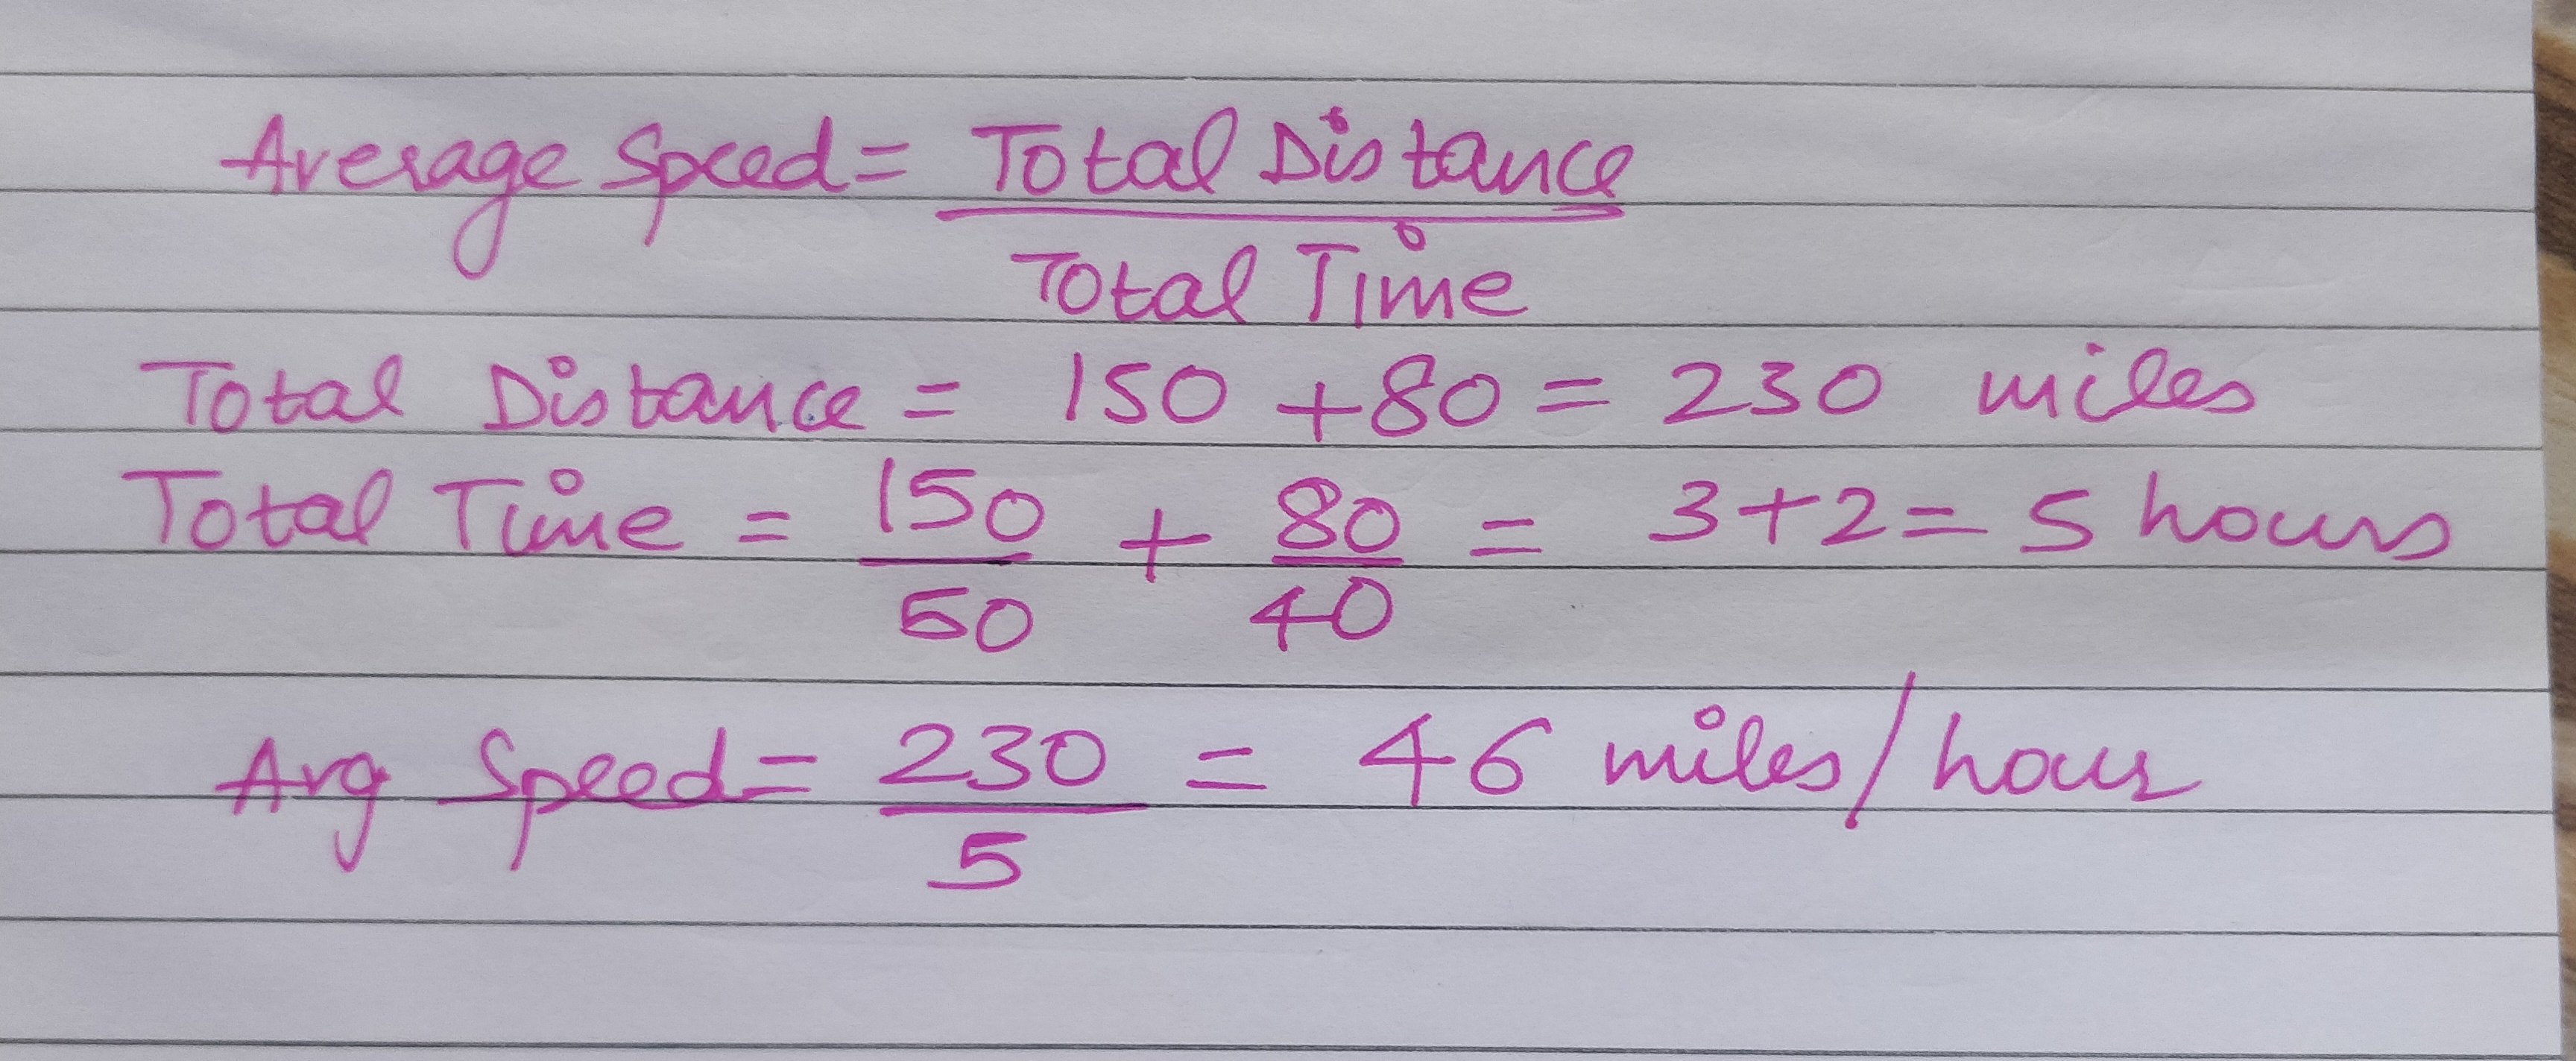 Average Speed = Total Distance
Total Time
Total Distance = 150 + 80 = 230 miles
Total Time = 150/50 + 80/40 = 3+2 = 5 hours
Avg Speed = 230/5 = 46 miles/hour